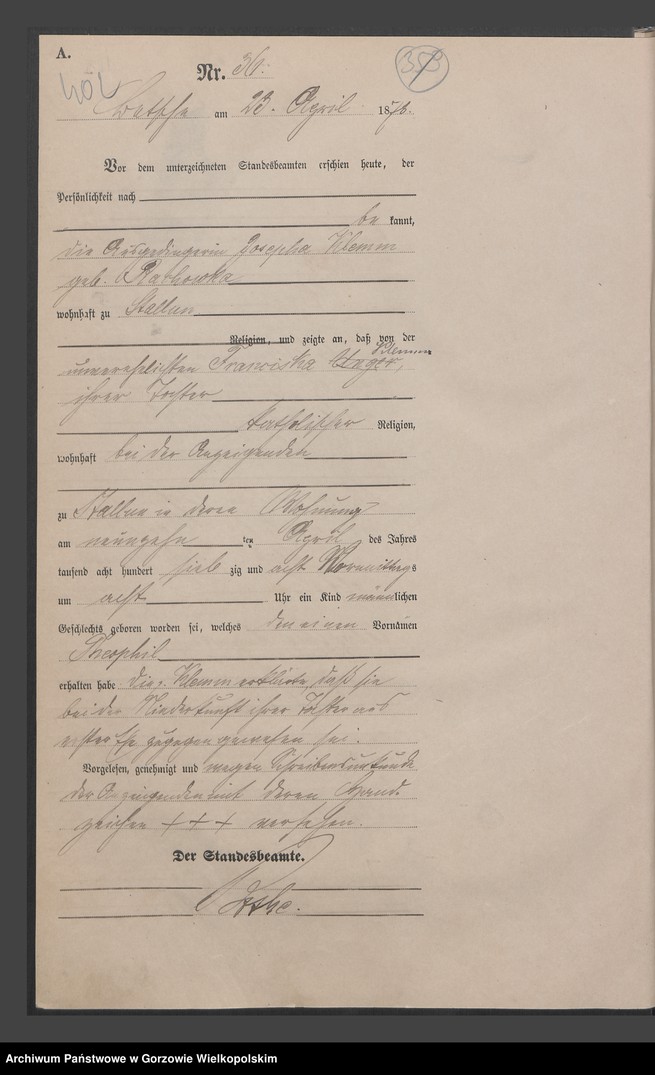 A.
Nr. 36.
353
402
am 23. April 1876.
Vor dem unterzeichneten Standesbeamten erschien heute, der
Persönlichkeit nach
be kannt,
die Ausgedingerin Josepha Klemm
geb.
wohnhaft zu Stallun
Religion, und zeigte an, daß von der
Klemm
unverehelichten Franciska Unger,
ihrer Tochter
katholischer Religion,
wohnhaft bei der Anzeigenden
zu Stallun in deren Wohnung
am neunzehn ten April des Jahres
tausend acht hundert sieb zig und Vormittags
um acht Uhr ein Kind männlichen
Geschlechts geboren worden sei, welches den einen Vornamen
Theophil
erhalten habe die p. Klemm erklärte, daß sie
bei der Niederkunft ihrer Tochter aus
erster Ehe zugegen gewesen sei.
Vorgelesen, genehmigt und wegen Schreibensunkunde
der Anzeigenden mit deren Hand-
zeichen + + + versehen.
Der Standesbeamte.
Archiwum Państwowe w Gorzowie Wielkopolskim